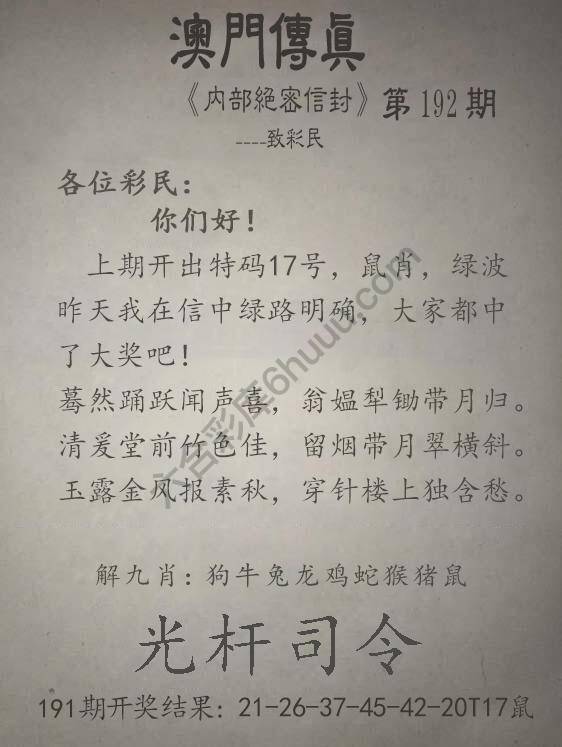 澳門傳真
《内部絕密信封》第192期
----致彩民
各位彩民：
你们好！
上期开出特码17号，鼠肖，绿波
昨天我在信中绿路明确，大家都中
了大奖吧！
蓦然踊跃闻声喜，翁媪犁锄带月归。
清爰堂前竹色佳，留烟带月翠横斜。
玉露金风报素秋，穿针楼上独含愁。
解九肖：狗牛兔龙鸡蛇猴猪鼠
光杆司令
191期开奖结果：21-26-37-45-42-20T17鼠
六合彩库6huuu.com